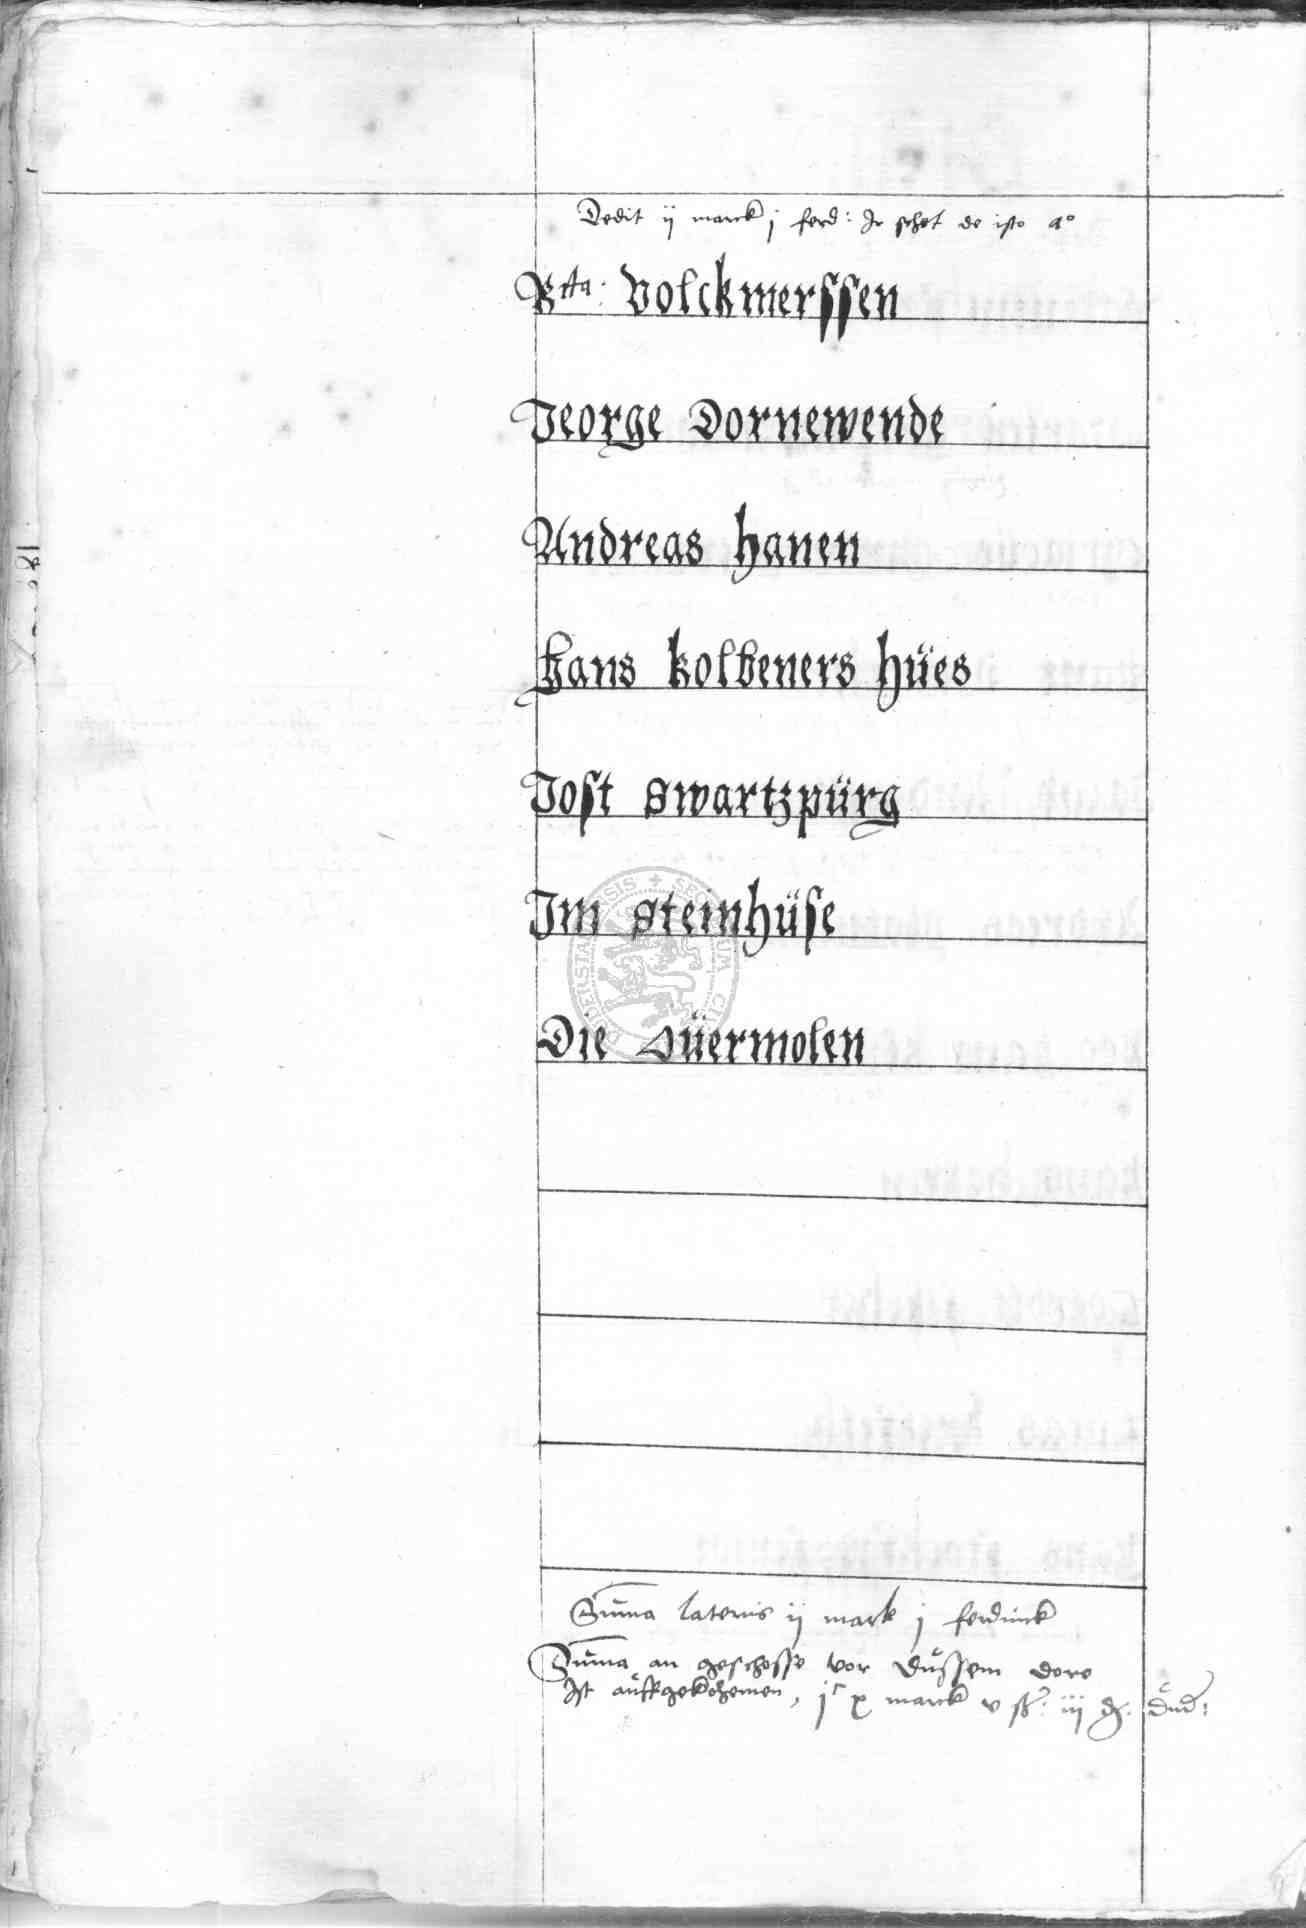 Dedit ij marck j ferd: Ir schot de isto a°
Rcta: Volckmerssen
Jeorge Dornewende
Andreas hanen
Hans kolbeners hües
Jost Swartzpürg
Im Steinhüse
Die Süermolen
Suma lateris ij mark j ferdinck
Suma an geschosse vor düssem dore
Ist auffgekohemen, jc x marck v ß. iij d. dud:
SECRETUM